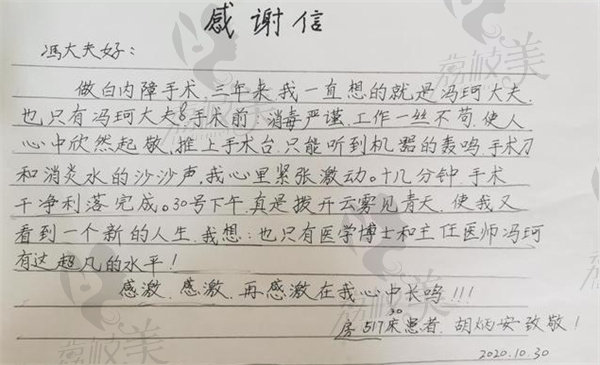 感谢信
冯大夫好:
做白内障手术.三年来.我一直想的就是冯珂大夫.
也只有冯珂大夫。手术前,消毒严谨.工作一丝不苟.使人
心中欣然起敬.推上手术台.只能听到机器的轰鸣.手术刀
和消炎水的沙沙声.我心里紧张激动.十几分钟.手术
干净利落完成。30号下午.真是拨开云雾见青天.使我又
看到一个新的人生.我想:也只有医学博士和主任医师冯珂
有这超凡的水平!
感激.感激.再感激在我心中长鸣!!!
房517 30床患者.胡炳安致敬!
2020.10.30
荔枝美